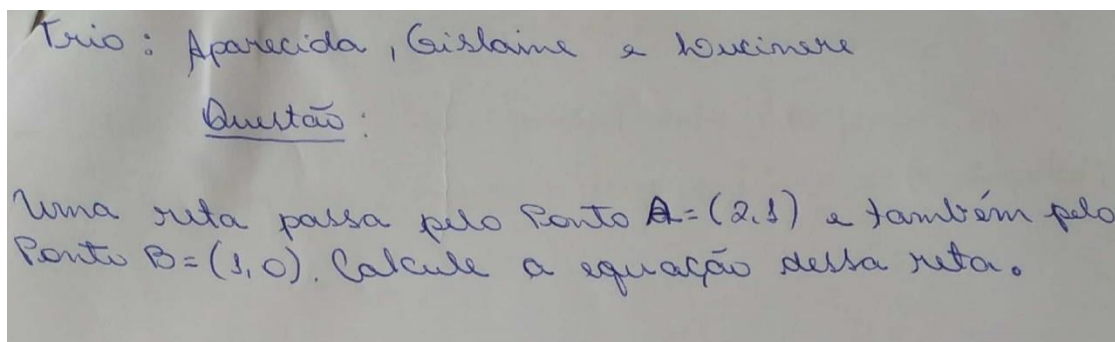 Trio: Aparecida, Gislaine e Lucimere
Questão:
Uma reta passa pelo Ponto A=(2,1) e também pelo
Ponto B=(1,0). Calcule a equação dessa reta.